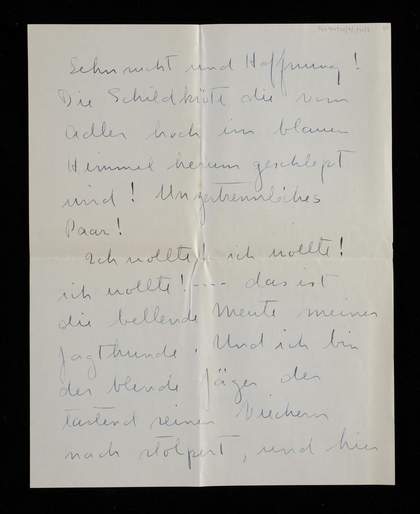 Sehnsucht und Hoffnung!
Die Schildkröte die vom
Adler hoch im blauen
Himmel herum geschlept
wird! Unzertrennliches
Paar!
Ich wollte! ich wollte!
ich wollte! ---- das ist
die bellende Meute meiner
Jagthunde. Und ich bin
der blinde Jäger der
tastend seinen Viechern
nach stolpert, und hier